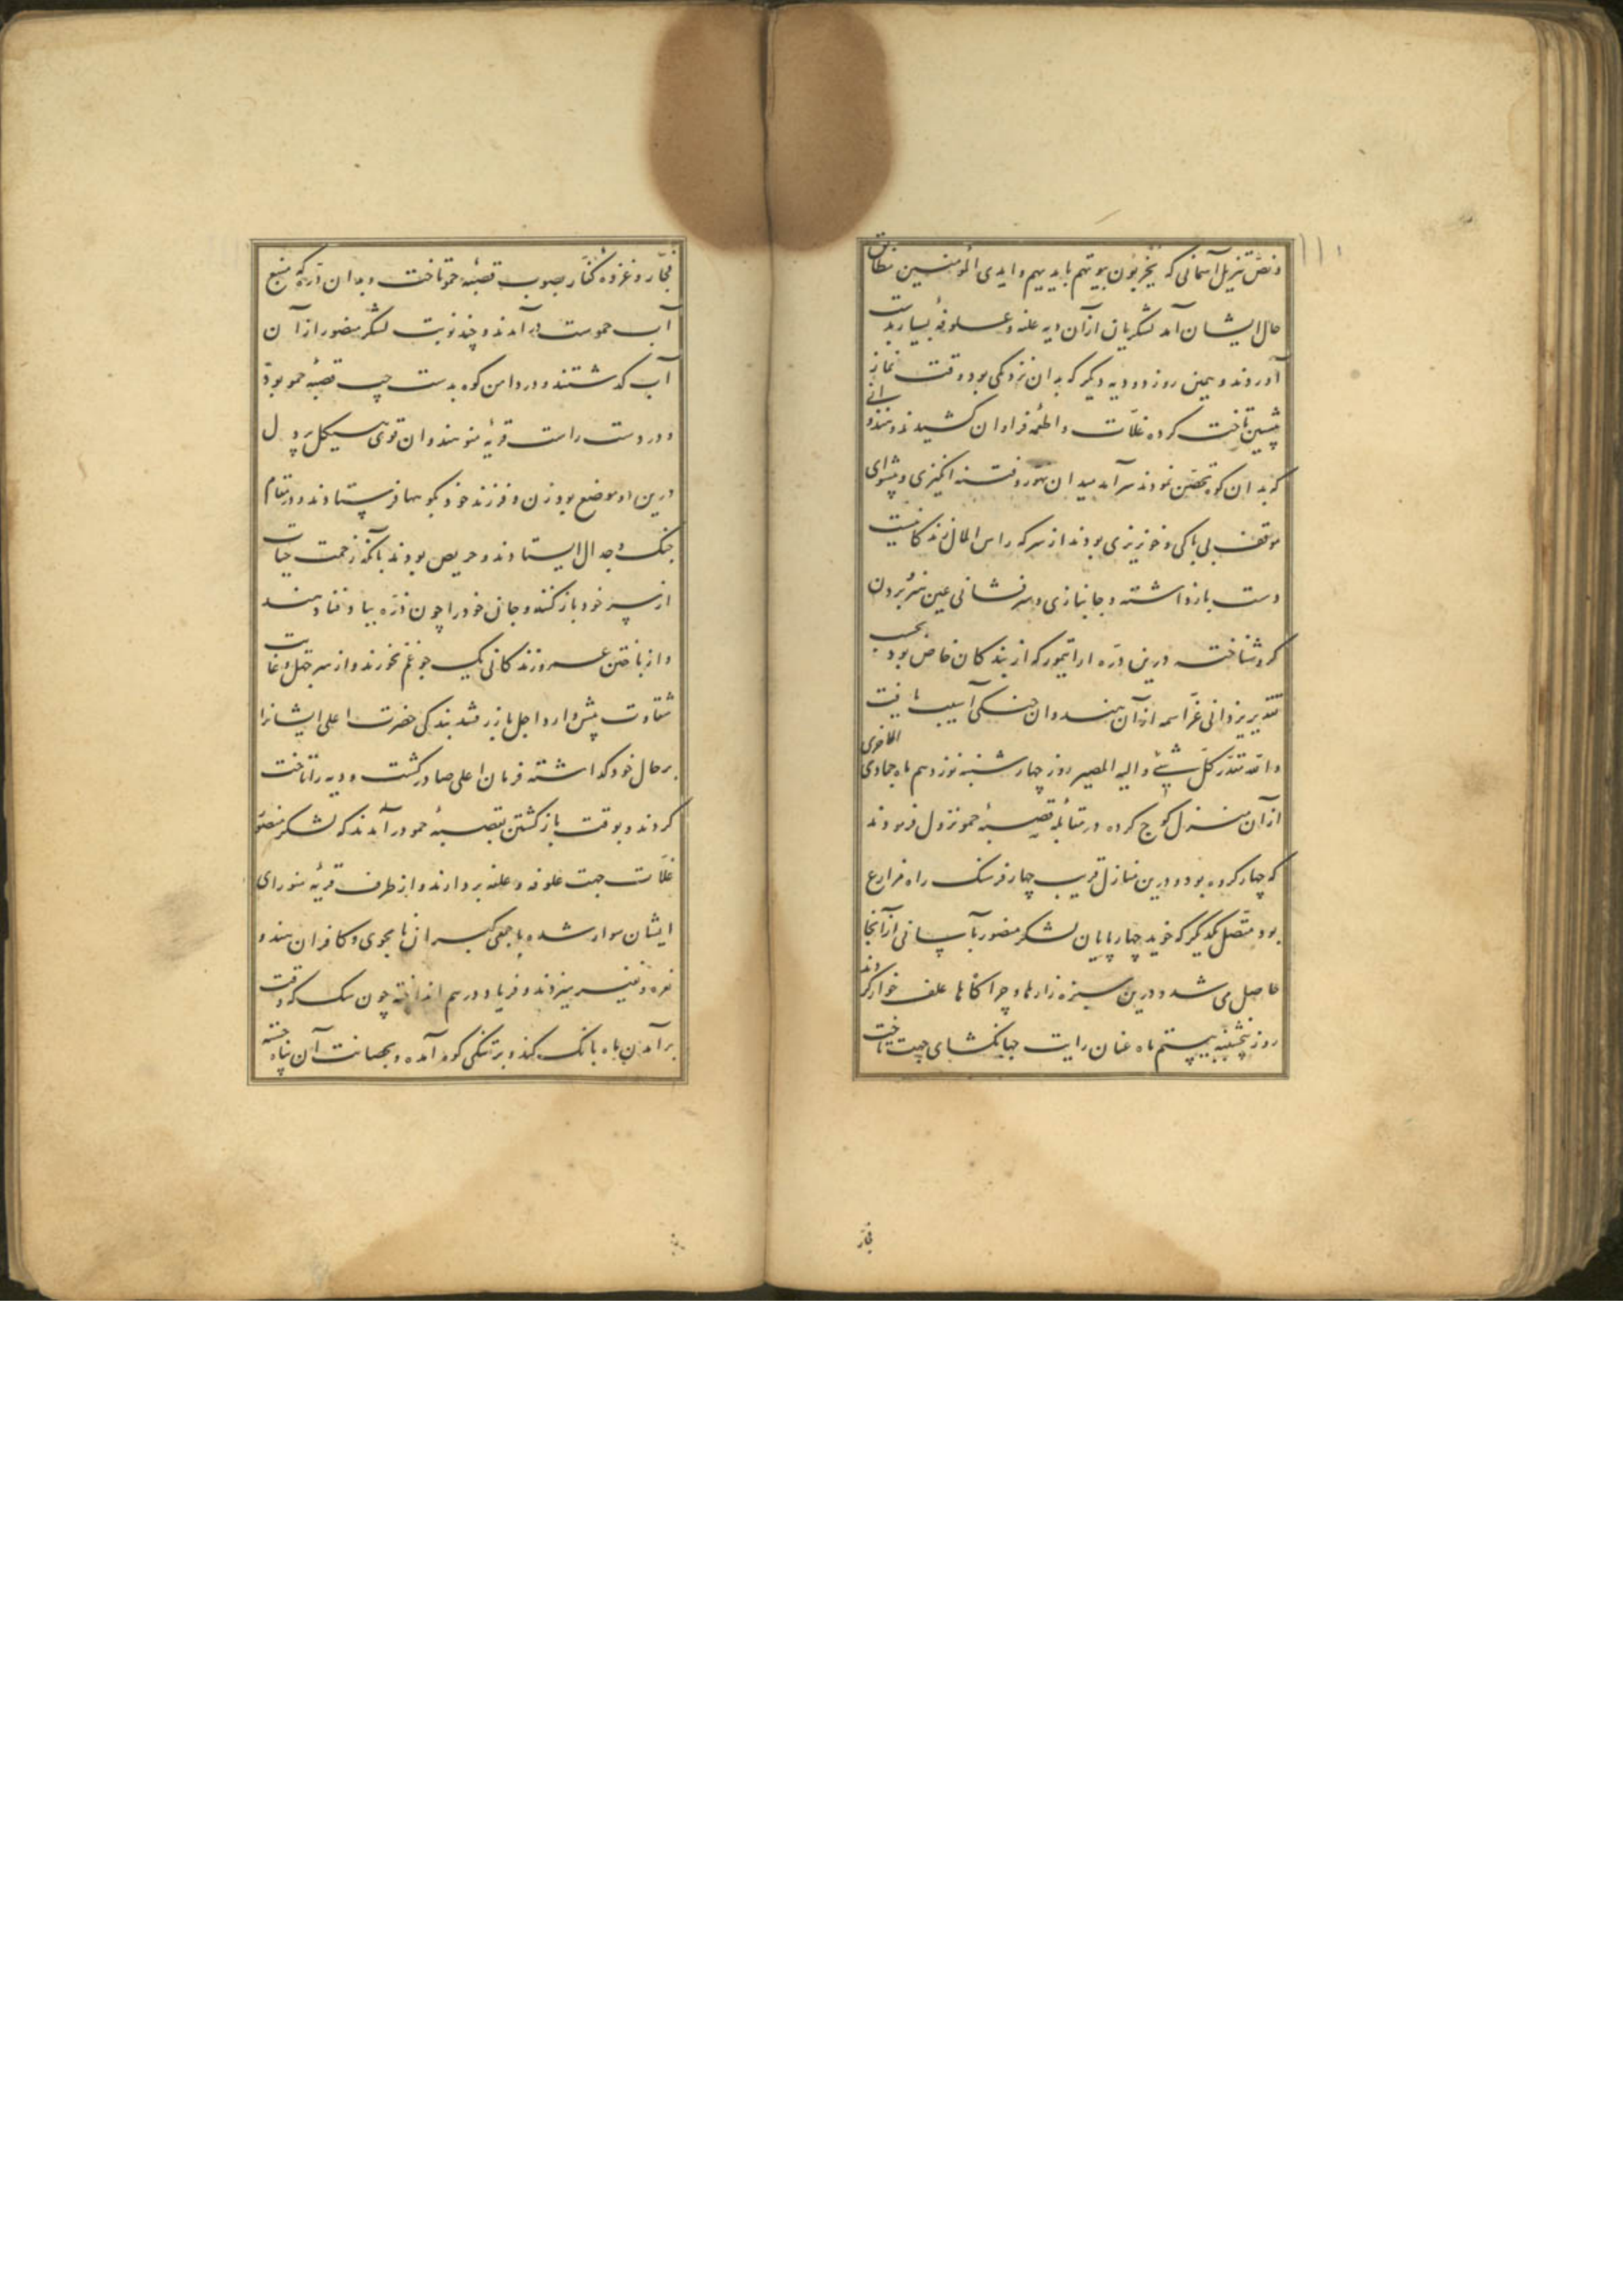 ونص تنزیل آسمانی که یخربون بیوتهم بایدیهم وایدی المؤمنین مطابق
حال ایشان آمد لشکریان ازان دیه غله وعلوفهٔ بسیار بدست
آوردند وهمین روز دو دیه دیکر که بدان نزدیکی بود وقت نماز
پیشین تاخت کرده غلات واطعمه فراوان کشیدند وهندوانی
که بدان کوه تحصن نمودند سرآمد میدان تهور وفتنه انکیزی وپیشوای
موقف بی باکی وخونریزی بودند از سر که راس المال زندکانیست
دست بازداشته وجانبازی وسرفشانی عین هنر بردن
کرو شناخته درین دره اراتیمور که از بندکان خاص بود بحسب
تقدیر یزدانی عز اسمه ازان هندوان جنکی آسیب یافت
والله مقدر کل شیء والیه المصیر روز چهارشنبه نوزدهم ماه جمادی الاخری
ازان منزل کوچ کرده در مقابله قصبهٔ جمو نزول فرمودند
که چهار کروه بود ودرین منازل قریب چهار فرسنک راه مزارع
بود متصل یکدیکر که خوید چهارپایان لشکر منصور بآسانی ازانجا
حاصل می شد ودرین سبزه زارها وچراکاها علف خوار کردند
روز پنجشنبه بیستم ماه عنان رایت جهانکشای جهت تاخت
فجار
فجار وغزوه کفار بصوب قصبهٔ جمو تاخت وبدان دره که منبع
آب جموست در آمدند وچند نوبت لشکر منصور ازان
آب کدشتند ودر دامن کوه بدست چپ قصبهٔ جمو بود
ودر دست راست قریهٔ منو هندوان قوی هیکل پر دل
درین دو موضع بود زن وفرزند خود بکوهها فرستادند ودر مقام
جنک وجدال ایستادند وحریص بودند بانکه زحمت حیات
از سر خود باز کنند وجان خود را چون ذره بباد فنا دهند
واز باختن عمر وزندکانی یک جو غم نخورند واز سر جهل وغایت
شقاوت پیش وار داجل باز رفتند بندکی حضرت اعلی ایشانرا
برحال خود کداشته فرمان اعلی صادر کشت ودیه را تاخت
کردند وبوقت باز کشتن بقصبهٔ جمو درآمدند که لشکر منصور
غلات جهت علوفه وعلفه بردارند واز طرف قریهٔ منو رای
ایشان سوار شده با جمعی کبران نامجوی وکافران هندو
نعره ونفیر میزدند وفریاد درهم انداخته چون سک که وقت
برآمدن ماه بانک کند وبر تنکی کوه آمده وبحصانت آن پناه جسته